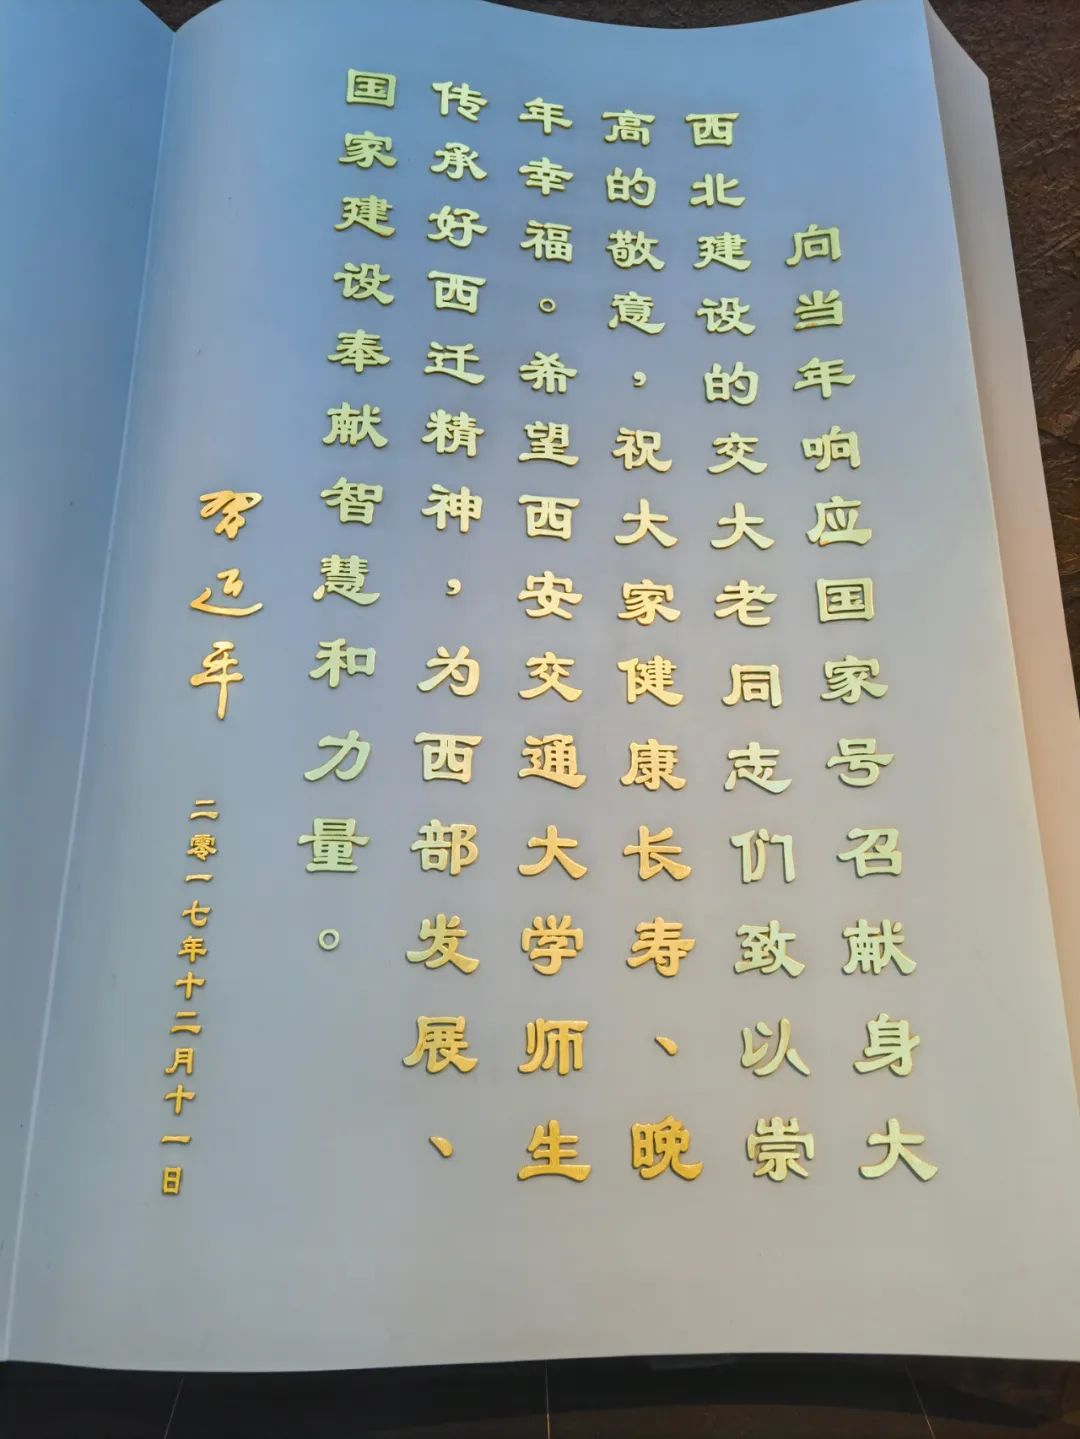 向当年响应国家号召献身大
西北建设的交大老同志们致以崇
高的敬意，祝大家健康长寿、晚
年幸福。希望西安交通大学师生
传承好西迁精神，为西部发展、
国家建设奉献智慧和力量。
习近平
二零一七年十二月十一日